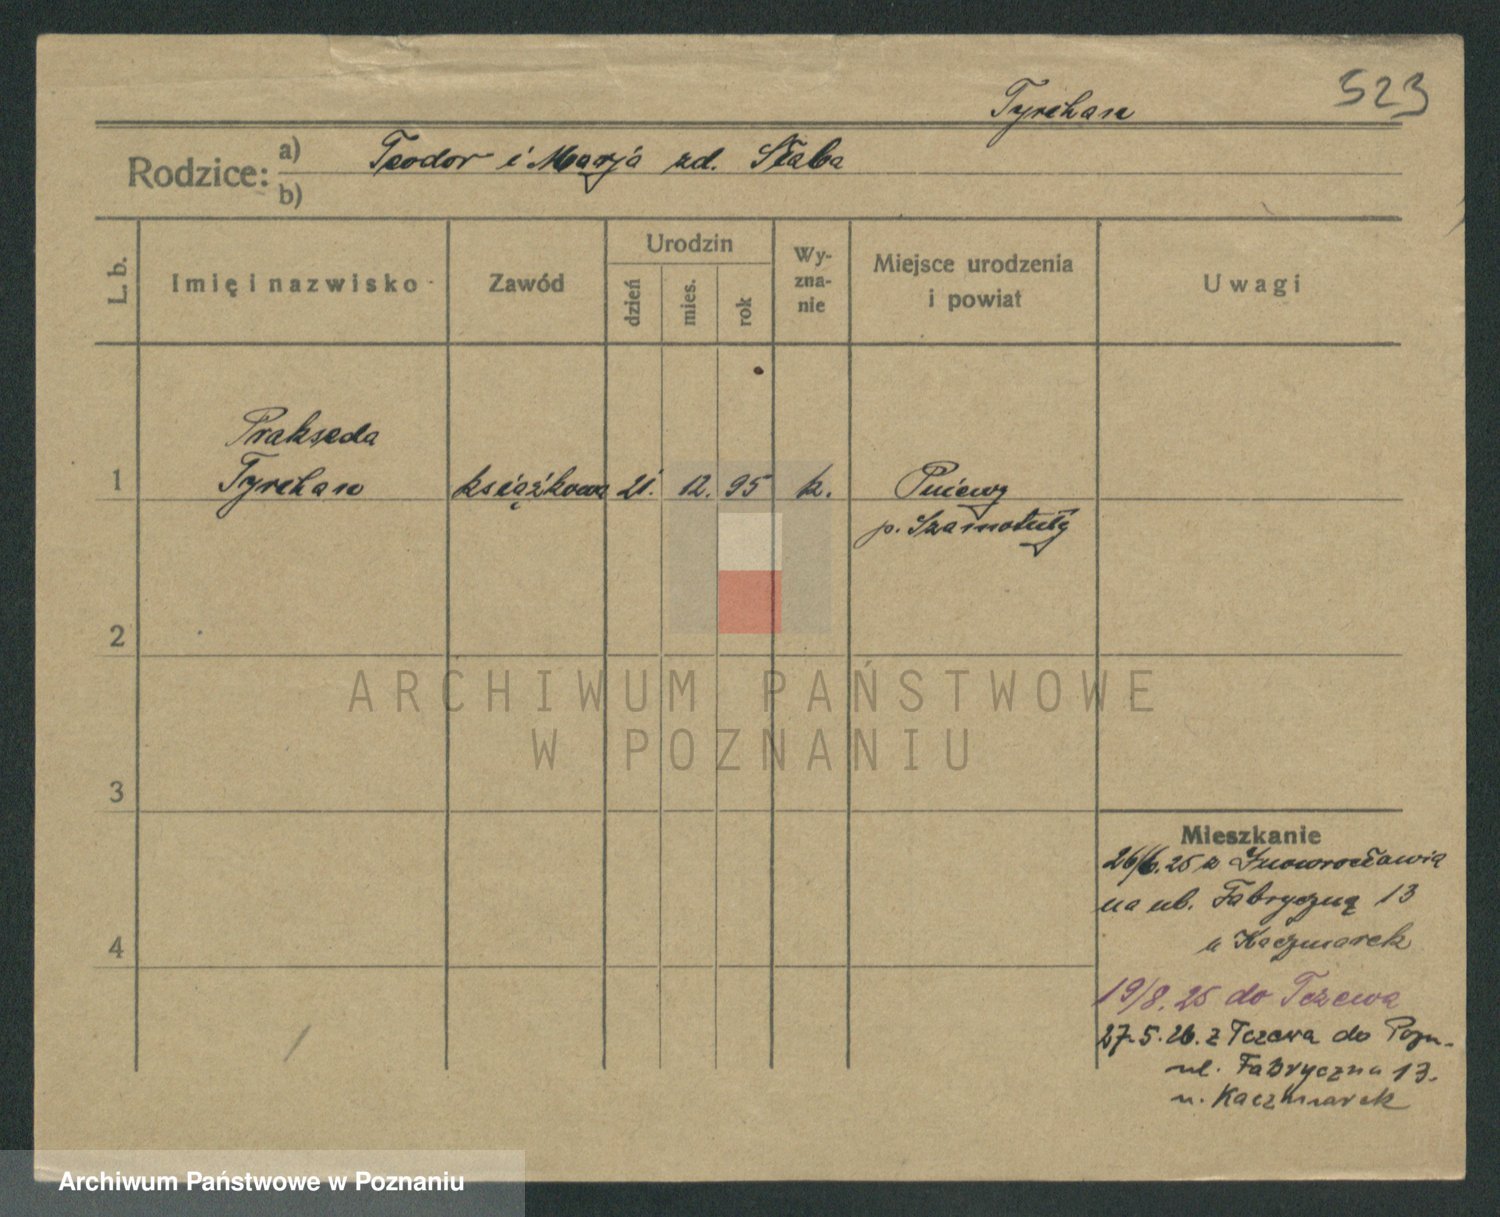 523
Tyrchan
Rodzice: a) Teodor i Marja zd. Słaba
b)
L. b.
Imię i nazwisko
Zawód
Urodzin
dzień
mies.
rok
Wy-
zna-
nie
Miejsce urodzenia
i powiat
Uwagi
Prakseda
1 Tyrchan książkowa 21. 12. 95 k. Pniewy
p. Szamotuły
2
3
4
Mieszkanie
26/6. 25 z Inowrocławia
na ul. Fabryczną 13
u Kaczmarek
19/8. 25 do Tczewa
27.5.26. z Tczewa do Pozn.
ul. Fabryczna 13.
u. Kaczmarek
ARCHIWUM PAŃSTWOWE
W POZNANIU
Archiwum Państwowe w Poznaniu